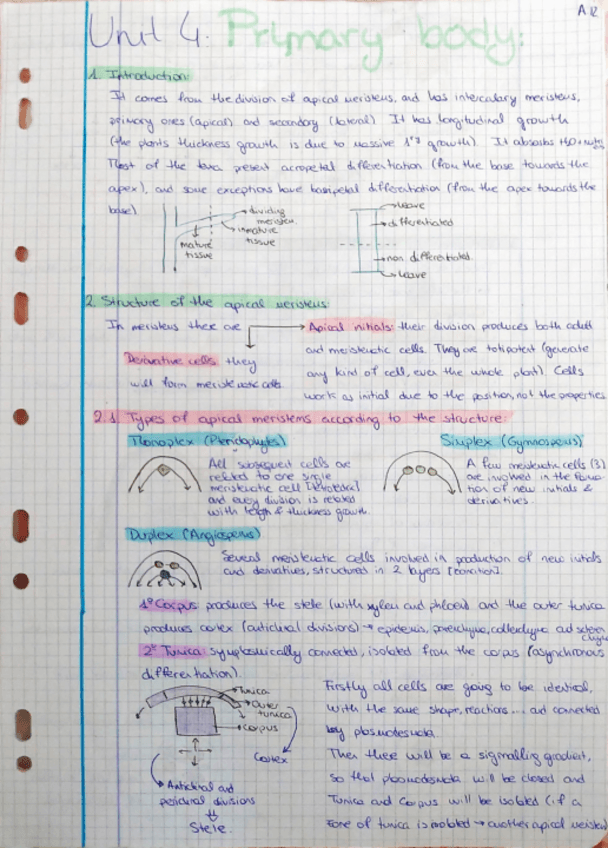 A 12
Unit 4: Primary body:
1. Introduction:
It comes from the division of apical meristems, and has intercalary meristems,
primary ones (apical) and secondary (lateral). It has longitudinal growth
(the plants thickness growth is due to massive 1ry growth). It absorbs H2O + nutr
Most of the taxa present acropetal differentiation (from the base towards the
apex), and some exceptions have basipetal differentiation (from the apex towards the
base).
dividing
meristem
inmature
tissue
mature
tissue
leave
differentiated
non differentiated.
leave
2. Structure of the apical meristems:
In meristems there are
Apical initials: their division produces both adult
and meristematic cells. They are totipotent (generate
any kind of cell, even the whole plant). Cells
work as initial due to the position, not the properties
Derivative cells: they
will form meristematic cells.
2.1 Types of apical meristems according to the structure:
Monoplex (Pteridophytes)
All subsequent cells are
related to one single
meristematic cell (tetrahedral)
and every division is related
with length & thickness growth.
Simplex (Gymnosperms)
A few meristematic cells (3)
are involved in the forma-
tion of new initials &
derivatives.
Duplex (Angiosperms)
Several meristematic cells involved in production of new initials
and derivatives, structured in 2 layers
1º Corpus produces the stele (with xylem and phloem) and the outer tunica
produces cortex (anticlinal divisions) → epidermis, parenchyma, collenchyma and scleren
chyma
2º Tunica: symplasmically connected, isolated from the corpus (asynchronous
differentiation).
Tunica
outer
tunica
corpus
Cortex
Anticlinal and
periclinal divisions
Stele.
Firstly all cells are going to be identical,
with the same shape, reactions ... and connected
by plasmodesmata.
Then there will be a signalling gradient,
so that plasmodesmata will be closed and
Tunica and Corpus will be isolated (if a
zone of tunica is isolated → another apical meristem